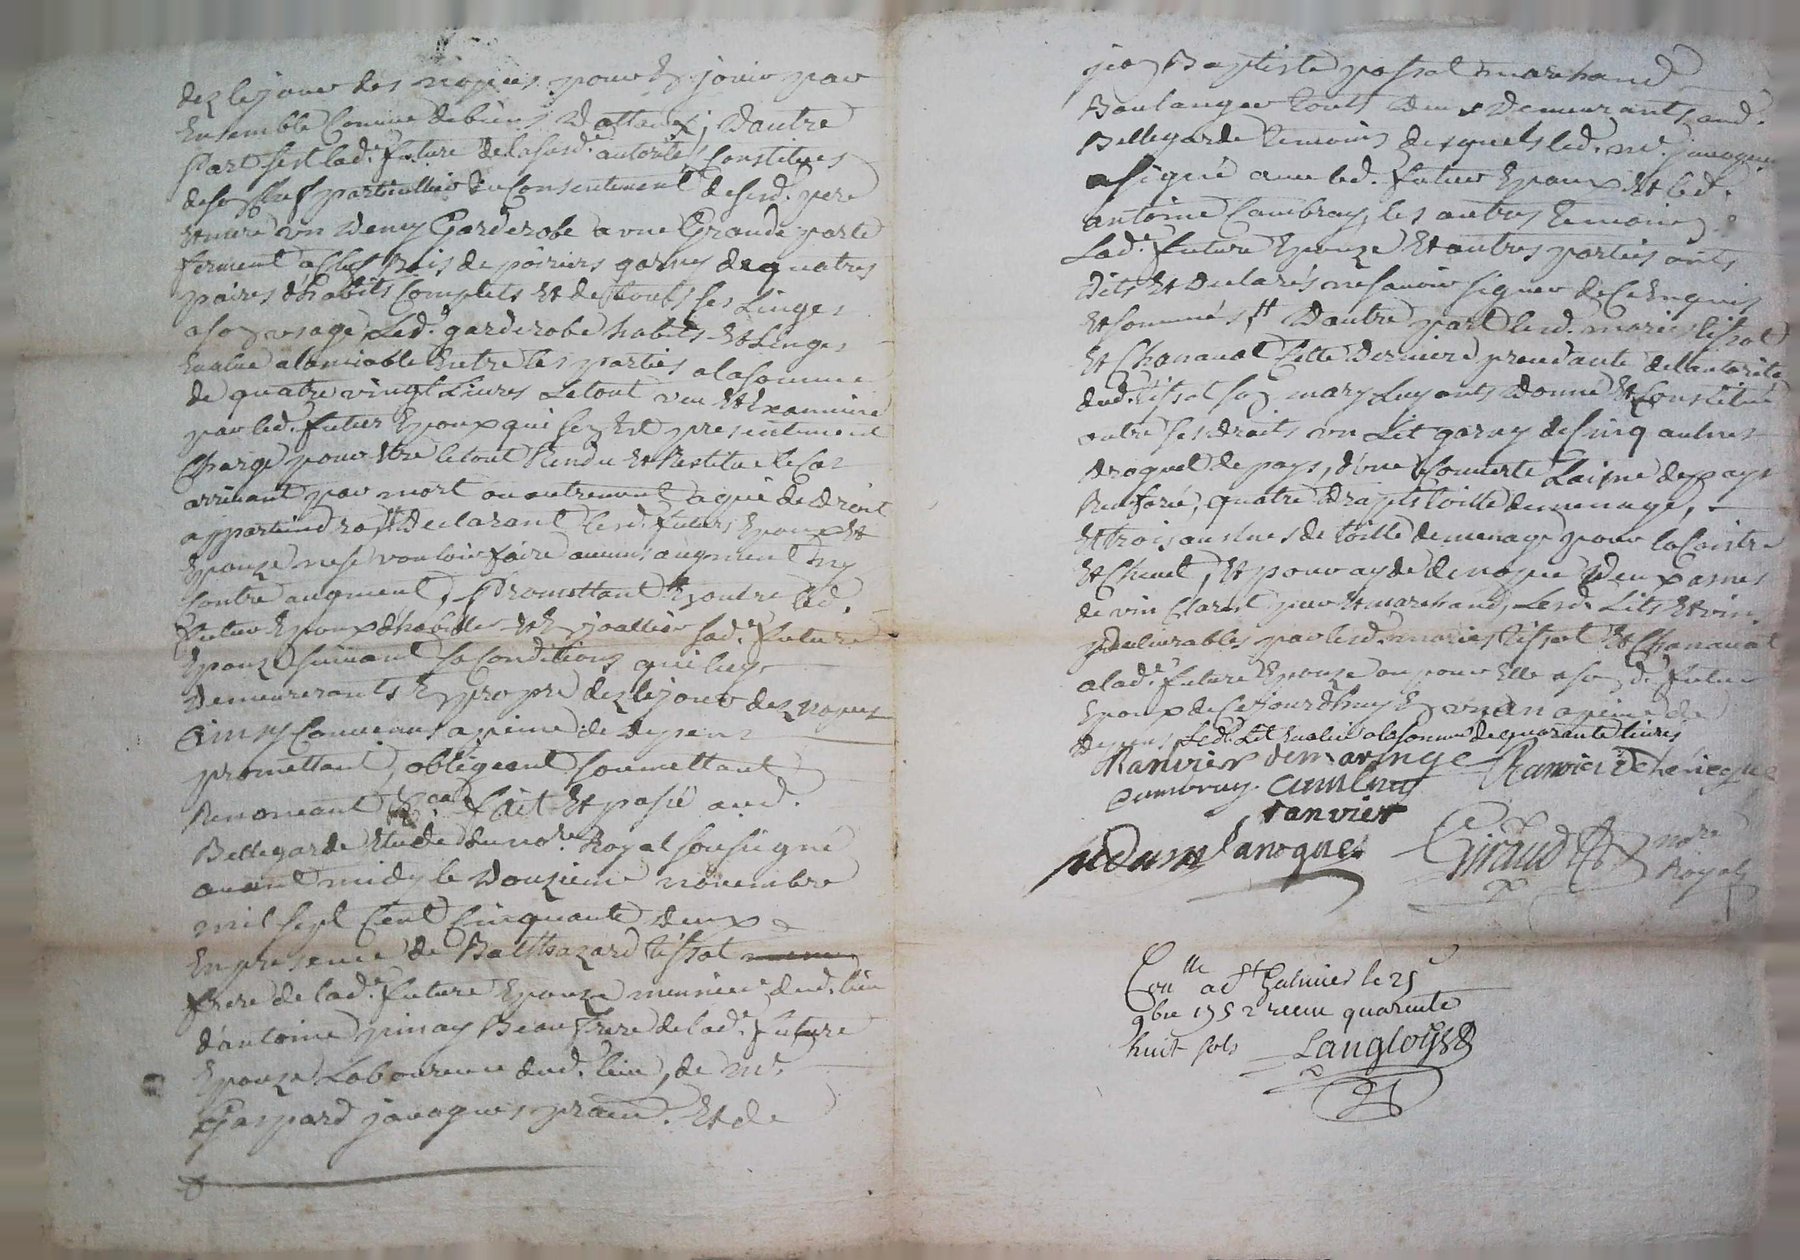 dez le jour des nopces pour En jouir par
Ensemble Comme de biens Dottaux, Dautre
Part s'est lad.e future de lasusd.e autorité Constituée
de son Chef particullier du Consentement desesd. pere
et mere un Demy Garderobe a une Grande porte
ferment a Clef Bois de poiriers garny de quatres
paires d'habits Complets Et de touts ses Linges
a son usage Led.t garderobe habits Et Linges
Evalué alamiable Entre les parties a la somme
de quatre vingt Livres Letout veu Et Examiné
par led. futur Epoux qui sen Est presentement
Chargé pour Etre letout Rendu Et Restitué le Cas
arrivant par mort ou autrement a qui de Droit
appartiendra Declarant lesd. futurs Epoux Et
Epouze ne se vouloir faire aucuns augment ny
Contre augment, Promettant En outre led.
futur Epoux d'habiller Et En joallier lad.e future
Epouze suivant sa Conditions qui luy
Demeurerants En propre dez le jour dez nopces
Ainsy Convenus a peine de Depens
promettant, obligeant, soumettant
Renonceant &.a fait Et passé aud.
Bellegarde Etude du no.re Royal sousigné
avant midy le Douzieme novembre
mil sept Cent Cinquante deux
En presence de Balthazard tissot
frere de lad.e future Epouze meunier dud. lieu
d'antoine pinay Beau frere de lad.e future
Epouze Laboureur dud. lieu, de m.e
Gaspard javogues pratn. Et de
jean Baptiste passot marchand
Boulanger touts deux Demeurants aud.
Bellegarde temoins desquels led. m.e javogues
a signé avec led. futur Epoux Et led.
antoine Cambray, les autres temoins
Lad.e future Epouze Et autres parties onts
Dits Et Declarés ne savoir signer de Ce Enquis
Et sommés Dautre part lesd. mariés tissot
Et Chanavat Cette Derniere procédante de l'autorité
dud. tissot son mary Luy onts Donné Et Constitué
outre ses droits un Lit garny de Cinq aulnes
Droguet de pays, d'une Couverte Laisne de pays
quatre Draps toille de menage,
Et trois aulnes de toille de menage pour la Coitre
Et Chevet, Et pour ayde de nopce Deux asnes
de vin Claret pur Et marchand, Lesd. Lits Et vin
Delivrables par lesd. mariés tissot Et Chanavat
a lad.e future Epouze ou pour Elle a son d.t futur
Epoux de Cejourdhuy En un an a peine de
Depens Led. Lit Evalué a la somme de quarante livres
Ranvier
Cambray
Ranvier
Javogues Giraud no.re
Royal
Con.lle a S.t Galmier le 25
9bre 1752 receu quarente
huit sols Langloys